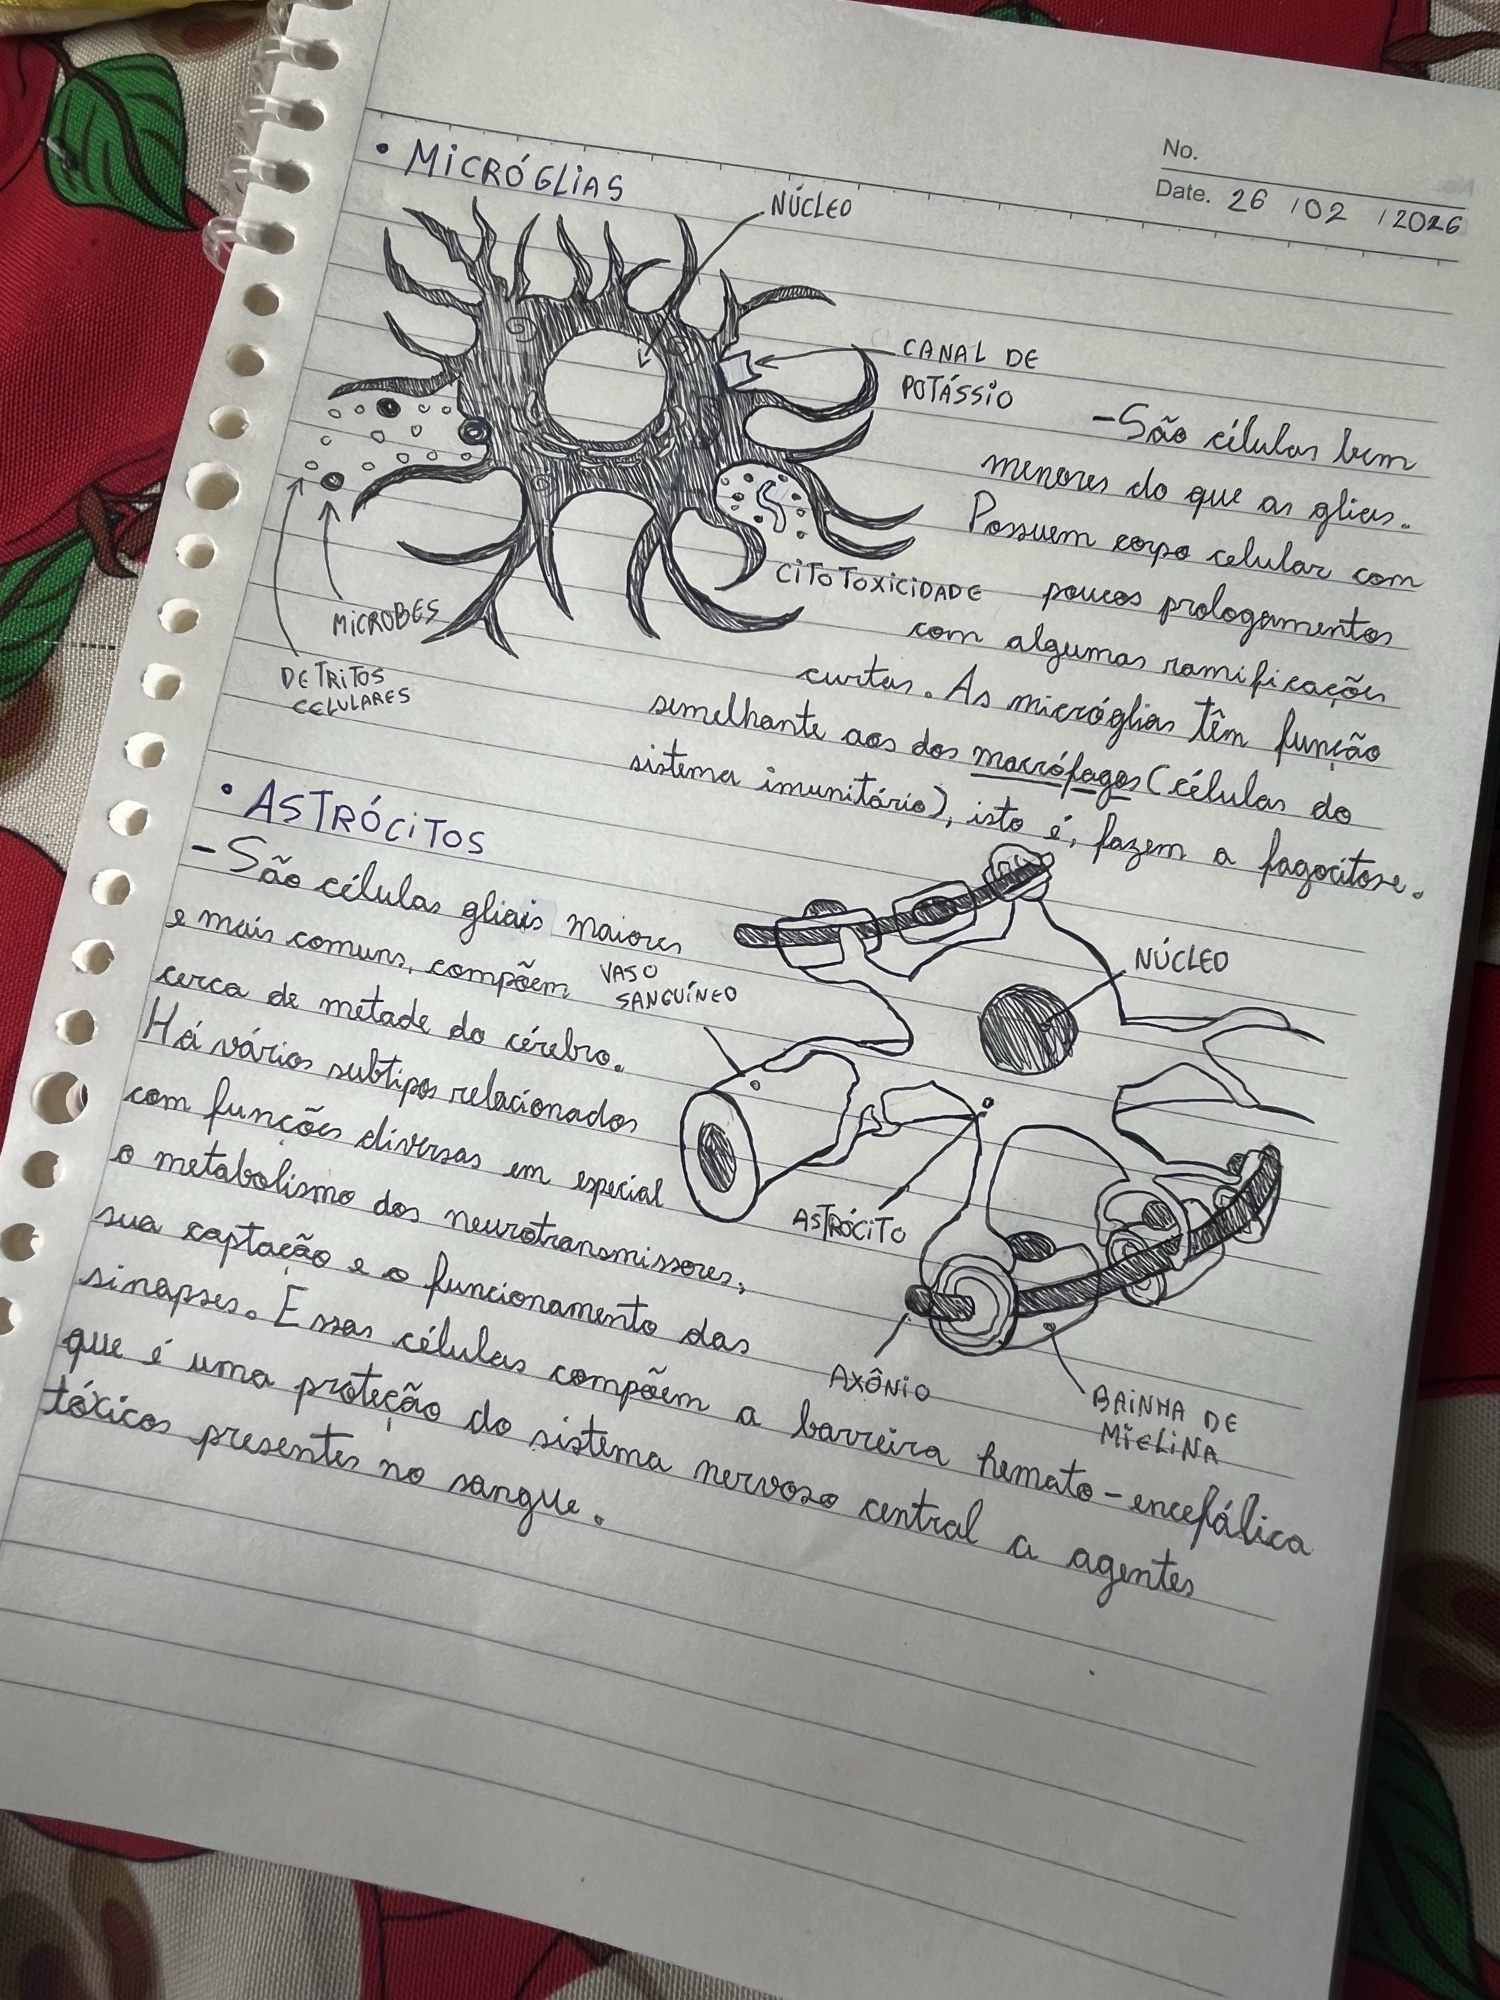 No.
Date. 26 / 02 / 2026
• MICRÓGLIAS
NÚCLEO
CANAL DE
POTÁSSIO
CITOTOXICIDADE
MICROBES
DETRITOS
CELULARES
- São células bem
menores do que as glias.
Possuem corpo celular com
poucos prologamentos
com algumas ramificações
curtas. As micróglias têm função
semelhante aos dos macrófagos (células do
sistema imunitário), isto é, fazem a fagocitose.
• ASTRÓCITOS
- São células gliais maiores
e mais comuns, compõem
cerca de metade do cérebro.
Há vários subtipos relacionados
com funções diversas em especial
o metabolismo dos neurotransmissores,
sua captação e o funcionamento das
sinapses. Essas células compõem a barreira hemato-encefálica
que é uma proteção do sistema nervoso central a agentes
tóxicos presentes no sangue.
VASO
SANGUÍNEO
NÚCLEO
ASTRÓCITO
AXÔNIO
BAINHA DE
MIELINA